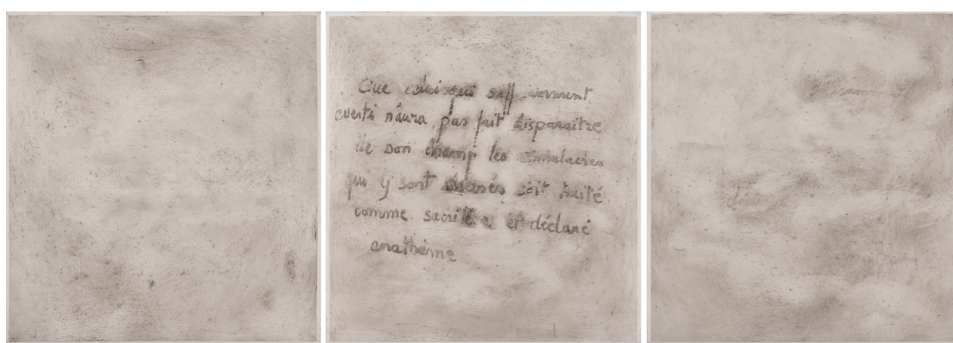 Que celui qui suffisamment
averti n'aura pas fait disparaître
de son champ les simulacres
qui y sont dressés soit traité
comme sacrilège et déclaré
anathème